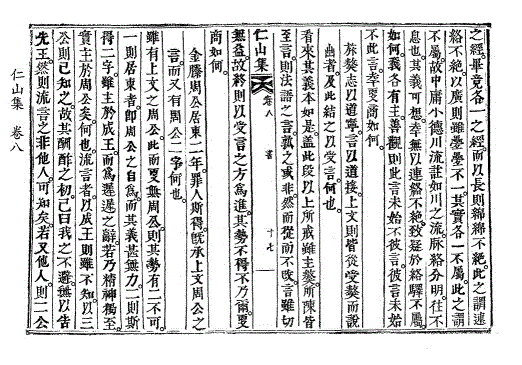 之經畢竟各一之經而以長則綿綿不絶此之謂連
絡不絶以廣則雖壘壘不一其實各一不屬此之謂
不屬故中庸小德川流註如川之流脉絡分明往不
息也其義可想幸無以連絡不絶致疑於絡驛不屬
如何義各有主善觀則此言未始不彼言彼言未始
不此言幸更商如何
旅獒志以道寧言以道接上文則皆從受獒而說
幽者及此結之以受言何也
看來其義本如是蓋此段以上所戒雖主獒所陳皆
至言則法語之言孰之或非然而從而不改言雖切
仁山集 卷八 書 十七
無益故終則以受言之方爲進其勢不得不乃爾更
商如何
金縢周公居東二年罪人斯得旣承上文周公之
言而又有周公二字何也
雖有上文之周公此而更無周公則其勢有二不可
一則居東者即周公之自爲而其義甚無力一則斯
得二字雖主於成王而爲遲遲之辭若乃精神獨至
賓主於周公矣何也流言者以成王則雖不知以三
公則已知之故其酬酢之初已曰我之不避無以告
先王然則流言之非他人可知矣若又他人則二公
仁山集 卷八